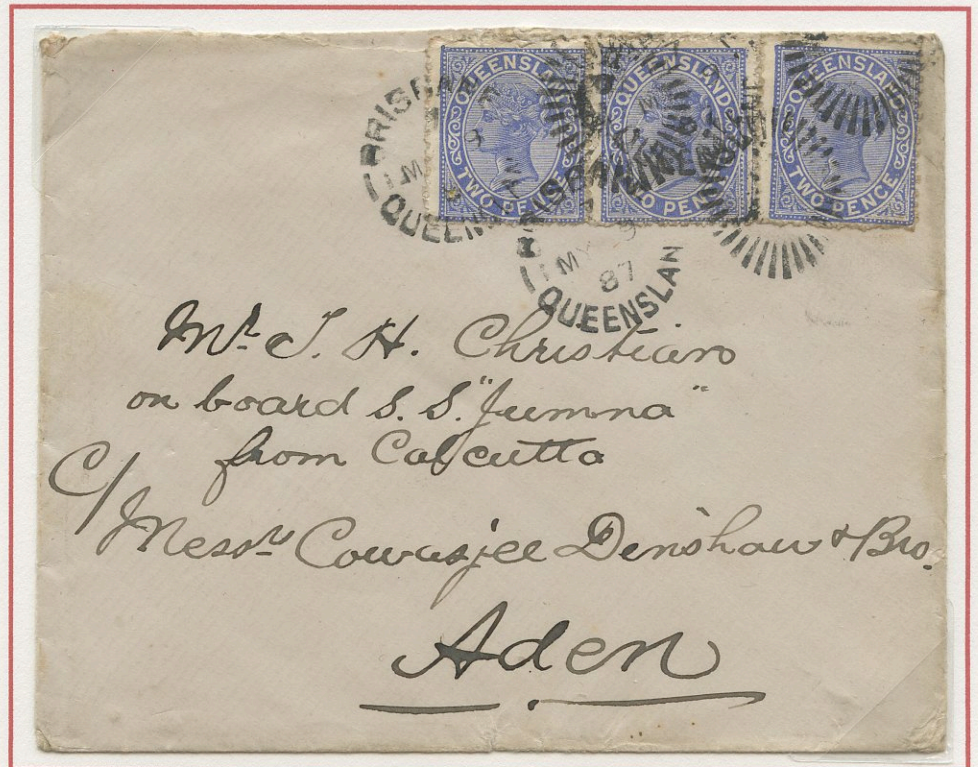 QUEENSLAND TWO PENCE
QUEENSLAND TWO PENCE
QUEENSLAND TWO PENCE
BRISBANE
MY
QUEENSLAN
BRISBANE
MY 9
87
QUEENSLAN
Mr. J. H. Christian
on board S. S. "Jumna"
from Calcutta
C/
Messrs Cowasjee Dinshaw & Bro.
Aden